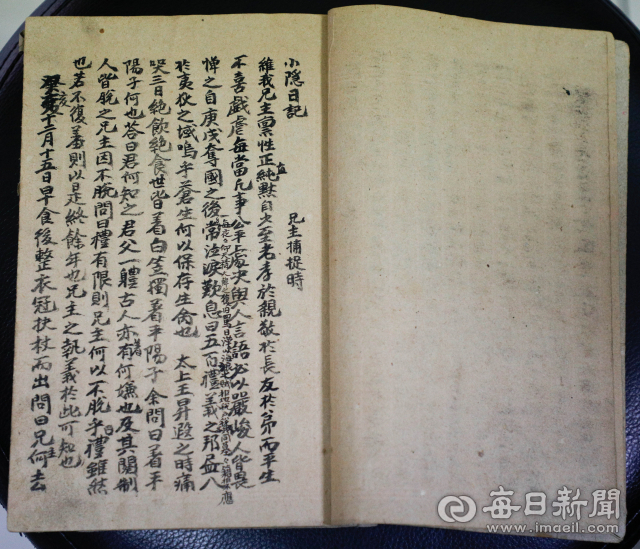 小隱日記
兄主捕捉時
維我兄主稟性正直純默自少至老孝於親敬於長友於弟而平生
不喜戱虐每當凡事公平處決與人言語必以嚴峻人皆畏
憚之自庚戌奪國之後常泣淚歎息曰五百禮義之邦益入
於夷狄之域嗚乎蒼生何以保存生食也 太上王昇遐之時痛
哭三日絶飮絶食世皆着白笠獨着平陽子余問曰着平
陽子何也答曰君何知之君父一軆古人亦有着何嫌也及其闋制
人皆脫之兄主因不脫問曰禮有限則兄主何以不脫乎曰禮雖然
也若不復首則以是終餘年也兄主之執義於此可知也
癸亥十二月十五日早食後整衣冠扶杖而出問曰兄主何去
每日新聞
www.imaeil.com